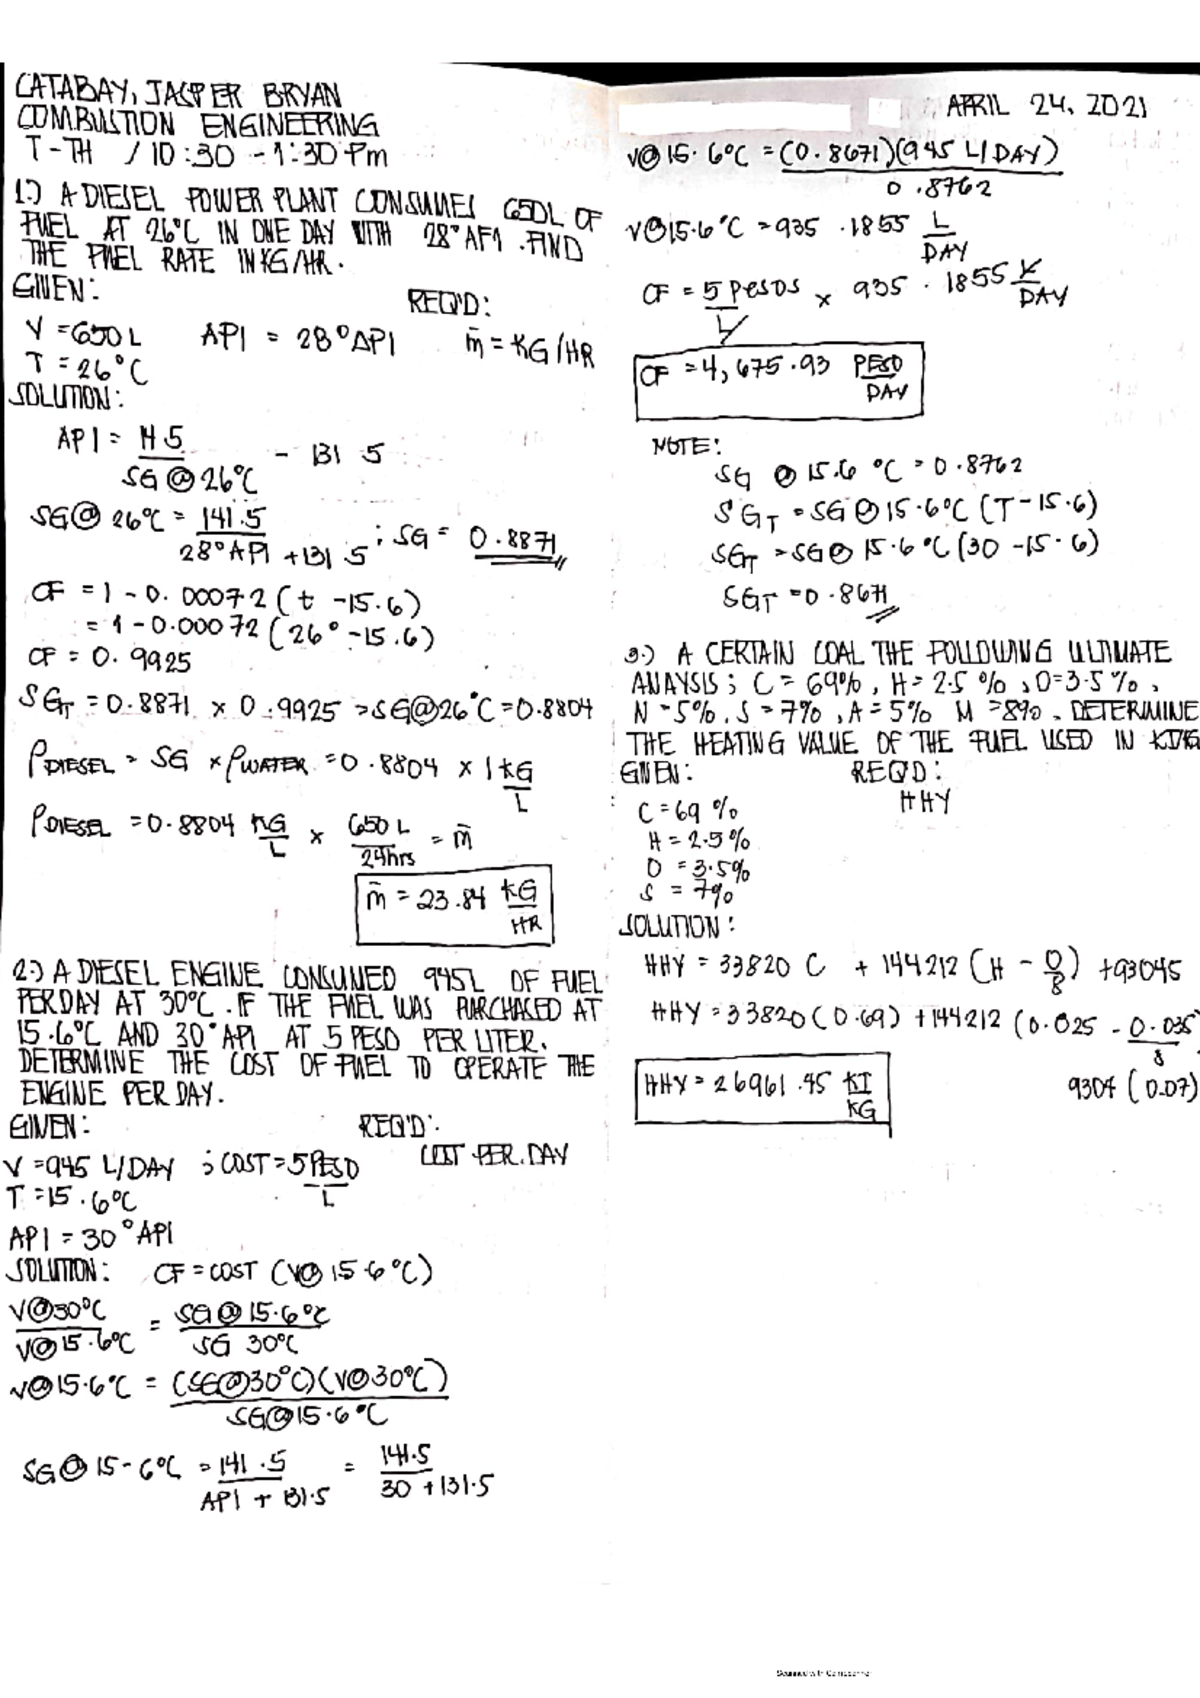 CATABAY, JASPER BRYAN
COMBUSTION ENGINEERING
T-TH / 10:30 - 1:30 Pm
1.) A DIESEL POWER PLANT CONSUMES 650L OF
FUEL AT 26°C IN ONE DAY WITH 28°API. FIND
THE FUEL RATE IN KG/HR.
GIVEN:
REQ'D:
V = 650 L API = 28°API m̄ = KG/HR
T = 26°C
SOLUTION:
API = 141.5 / SG @ 26°C - 131.5
SG@ 26°C = 141.5 / 28°API + 131.5 ; SG = 0.8871
CF = 1 - 0.00072 (t - 15.6)
= 1 - 0.00072 (26° - 15.6)
CF = 0.9925
SG_T = 0.8871 x 0.9925 = SG@26°C = 0.8804
ρDIESEL = SG x ρWATER = 0.8804 x 1 KG/L
ρDIESEL = 0.8804 KG/L x 650 L/24hrs = m̄
m̄ = 23.84 KG/HR
2.) A DIESEL ENGINE CONSUMED 945L OF FUEL
PER DAY AT 30°C. IF THE FUEL WAS PURCHASED AT
15.6°C AND 30°API AT 5 PESO PER LITER.
DETERMINE THE COST OF FUEL TO OPERATE THE
ENGINE PER DAY.
GIVEN: REQ'D:
V = 945 L/DAY ; COST = 5 PESO/L COST PER DAY
T = 15.6°C
API = 30°API
SOLUTION: CF = COST (V@ 15.6°C)
V@30°C / V@15.6°C = SG@15.6°C / SG 30°C
V@15.6°C = (SG@30°C)(V@30°C) / SG@15.6°C
SG@15-6°C = 141.5 / API + 131.5 = 141.5 / 30 + 131.5
APRIL 24, 2021
V@15.6°C = (0.8671)(945 L/DAY) / 0.8762
V@15.6°C = 935.1855 L/DAY
CF = 5 pesos/L x 935.1855 L/DAY
CF = 4,675.93 PESO/DAY
NOTE:
SG @ 15.6 °C = 0.8762
SG_T = SG@15.6°C (T-15.6)
SG_T = SG@ 15.6°C (30-15.6)
SG_T = 0.8671
3.) A CERTAIN COAL THE FOLLOWING ULTIMATE
ANAYSIS; C = 69%, H = 2.5 %, O=3.5%,
N = 5%. S = 7%, A = 5% M = 8%. DETERMINE
THE HEATING VALUE OF THE FUEL USED IN KJ/KG
GIVEN: REQ'D:
C = 69 % HHV
H = 2.5%
O = 3.5%
S = 7%
SOLUTION:
HHV = 33820 C + 144212 (H - O/8) + 9304S
HHV = 33820 (0.69) + 144212 (0.025 - 0.035/8
9304 (0.07)
HHV = 26961.45 KJ/KG